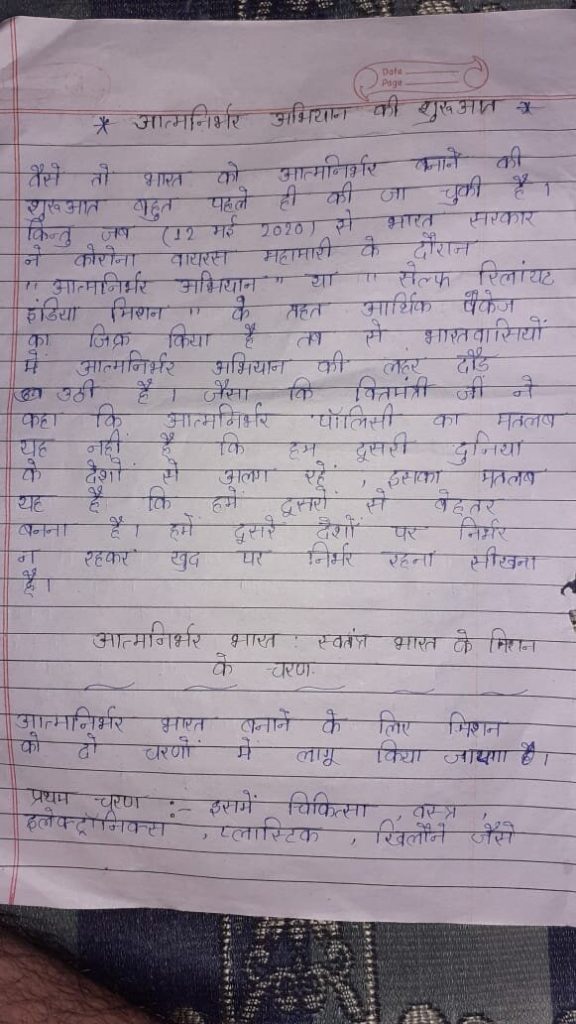 Date
Page
* आत्मनिर्भर अभियान की शुरुआत *
वैसे तो भारत को आत्मनिर्भर बनाने की
शुरुआत बहुत पहले ही की जा चुकी है ।
किन्तु जब (12 मई 2020) से भारत सरकार
ने कोरोना वायरस महामारी के दौरान
" आत्मनिर्भर अभियान " या " सेल्फ रिलांयट
इंडिया मिशन " के तहत आर्थिक पैकेज
का जिक्र किया है तब से भारतवासियों
में आत्मनिर्भर अभियान की लहर दौड़
उठी है । जैसा कि वित्तमंत्री जी ने
कहा कि आत्मनिर्भर पॉलिसी का मतलब
यह नहीं है कि हम दूसरी दुनिया
के देशों से अलग रहें , इसका मतलब
यह है कि हमें दूसरों से बेहतर
बनना है । हमें दूसरे देशों पर निर्भर
न रहकर खुद पर निर्भर रहना सीखना
है ।
आत्मनिर्भर भारत : स्वतंत्र भारत के मिशन
के चरण
आत्मनिर्भर भारत बनाने के लिए मिशन
को दो चरणों में लागू किया जायगा है ।
प्रथम चरण :- इसमें चिकित्सा , वस्त्र ,
इलेक्ट्रोनिक्स , प्लास्टिक , खिलौने जैसे